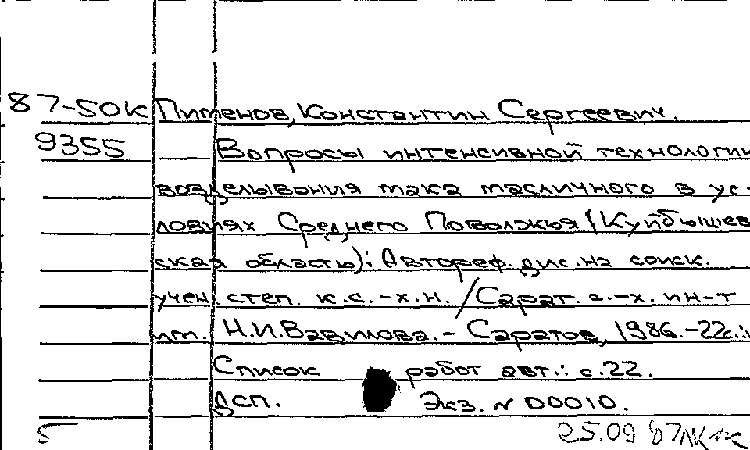 87-50к Пименов, Константин Сергеевич.
9355 Вопросы интенсивной технологии
возделывания мака масличного в ус-
ловиях Среднего Поволжья (Куйбышев
ская область): Автореф. дис. на соиск.
учен. степ. к.с.-х.н. / Сарат. с.-х. ин-т
им. Н.И. Вавилова. - Саратов, 1986. - 22с.
Список работ авт.: с.22.
Дсп. Экз. N 00010.
25.09 87